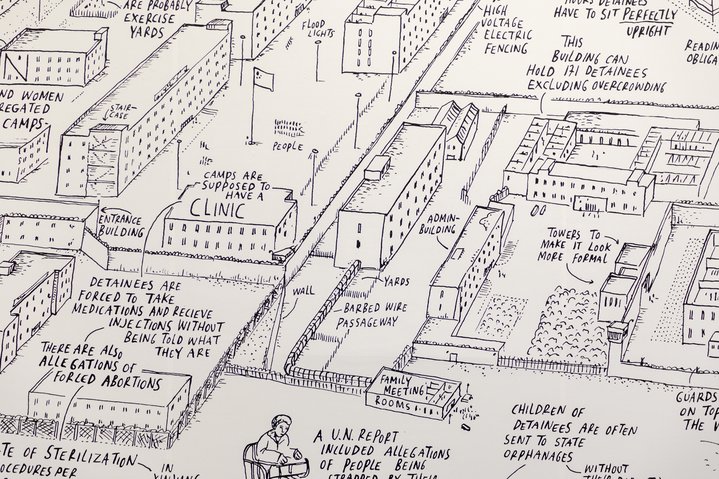 ARE PROBABLY
EXERCISE
YARDS
FLOOD
LIGHTS
HIGH
VOLTAGE
ELECTRIC
FENCING
HOURS DETAINEES
HAVE TO SIT PERFECTLY
UPRIGHT
THIS
BUILDING CAN
HOLD 171 DETAINEES
EXCLUDING OVERCROWDING
N
WOMEN
CAMPS
STAIR-
CASE
PEOPLE
CAMPS ARE
SUPPOSED TO
HAVE A
CLINIC
ENTRANCE
BUILDING
ADMIN-
BUILDING
TOWERS TO
MAKE IT LOOK
MORE FORMAL
DETAINEES ARE
FORCED TO TAKE
MEDICATIONS AND RECIEVE
INJECTIONS WITHOUT
BEING TOLD WHAT
THEY ARE
WALL
YARDS
BARBED WIRE
PASSAGEWAY
THERE ARE ALSO
ALLEGATIONS OF
FORCED ABORTIONS
FAMILY
MEETING
ROOMS
GUARDS
ON TOP
CHILDREN OF
DETAINEES ARE OFTEN
SENT TO STATE
ORPHANAGES
A U.N. REPORT
INCLUDED ALLEGATIONS
OF PEOPLE BEING
OF STERILIZATION
PER
IN
WITHOUT